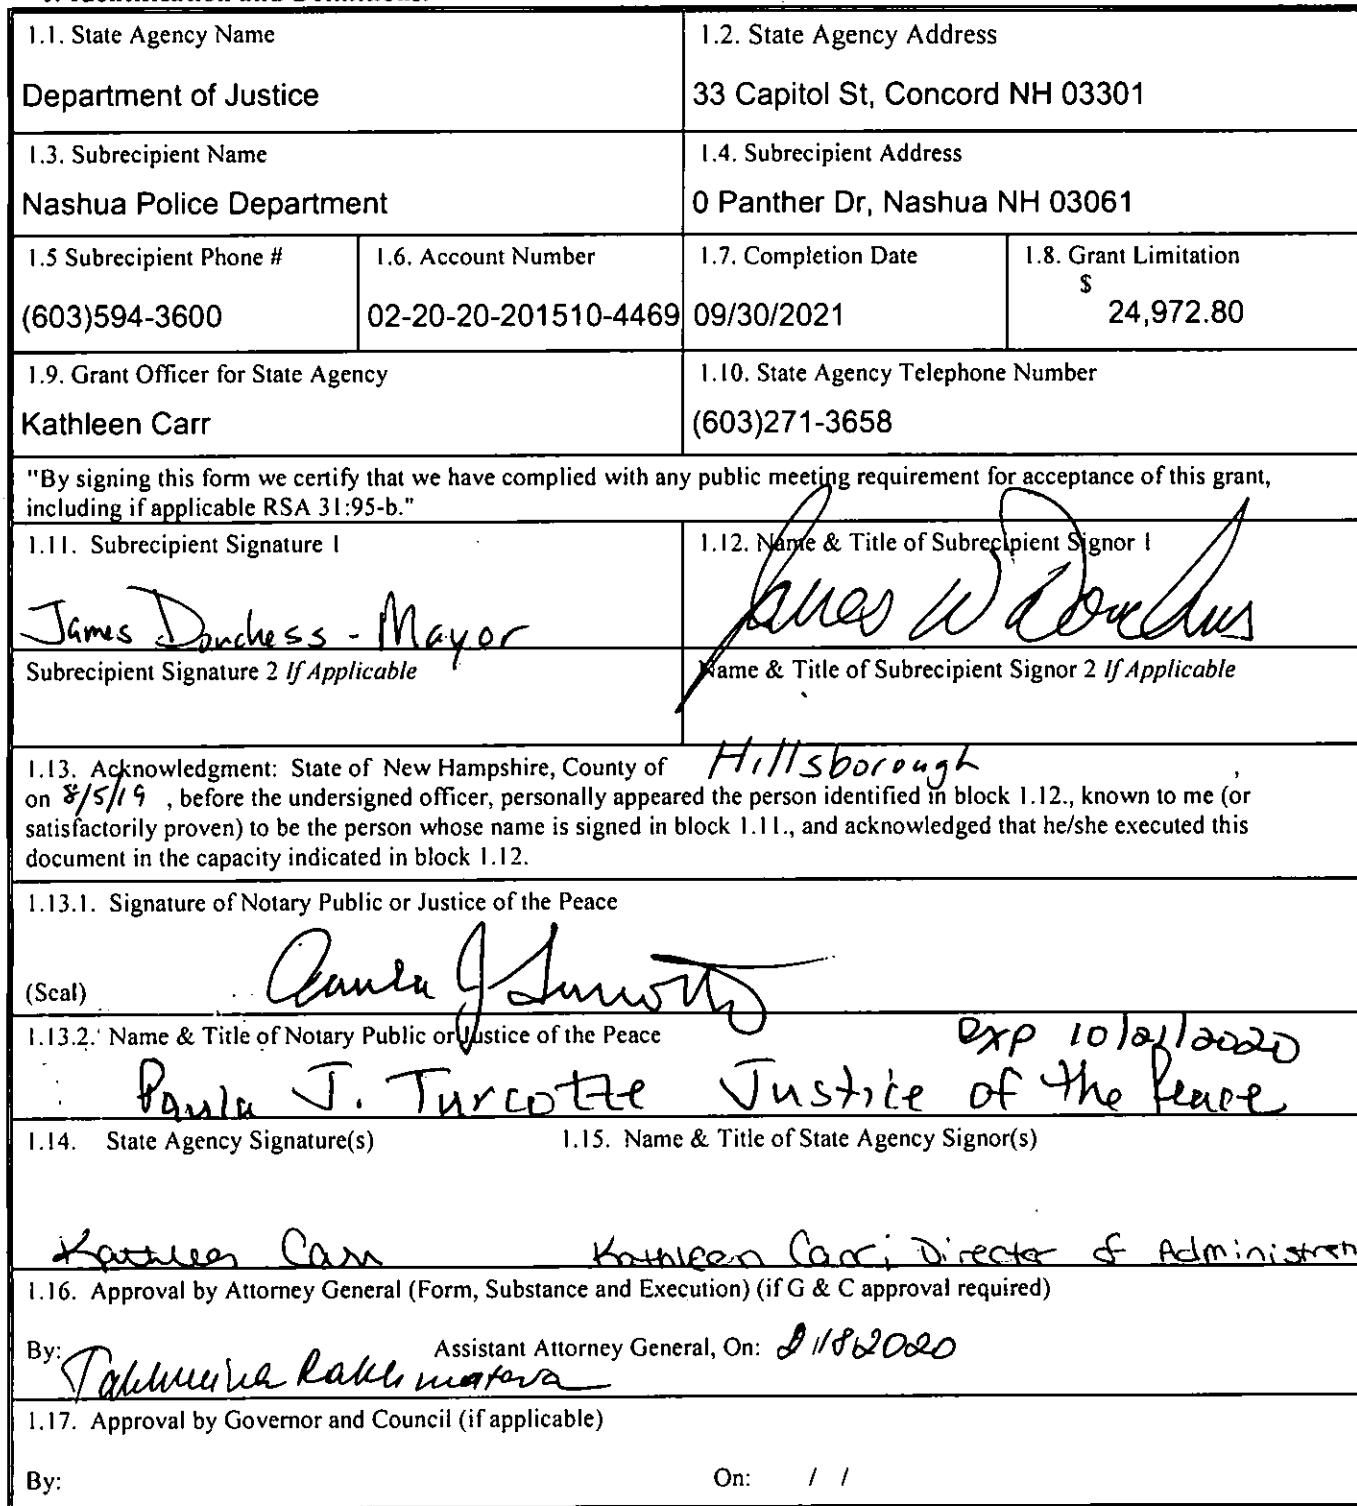 1.1. State Agency Name
Department of Justice
1.2. State Agency Address
33 Capitol St, Concord NH 03301
1.3. Subrecipient Name
Nashua Police Department
1.4. Subrecipient Address
0 Panther Dr, Nashua NH 03061
1.5 Subrecipient Phone #
(603)594-3600
1.6. Account Number
02-20-20-201510-4469
1.7. Completion Date
09/30/2021
1.8. Grant Limitation
$
24,972.80
1.9. Grant Officer for State Agency
Kathleen Carr
1.10. State Agency Telephone Number
(603)271-3658
"By signing this form we certify that we have complied with any public meeting requirement for acceptance of this grant,
including if applicable RSA 31:95-b."
1.11. Subrecipient Signature 1
James Donchess - Mayor
1.12. Name & Title of Subrecipient Signor 1
James W Donchess
Subrecipient Signature 2 If Applicable
Name & Title of Subrecipient Signor 2 If Applicable
1.13. Acknowledgment: State of New Hampshire, County of Hillsborough ,
on 8/5/19 , before the undersigned officer, personally appeared the person identified in block 1.12., known to me (or
satisfactorily proven) to be the person whose name is signed in block 1.11., and acknowledged that he/she executed this
document in the capacity indicated in block 1.12.
1.13.1. Signature of Notary Public or Justice of the Peace
(Seal) Paula J Turcotte
1.13.2. Name & Title of Notary Public or Justice of the Peace exp 10/21/2020
Paula J. Turcotte Justice of the Peace
1.14. State Agency Signature(s)
1.15. Name & Title of State Agency Signor(s)
Kathleen Carr
Kathleen Carr; Director of Administration
1.16. Approval by Attorney General (Form, Substance and Execution) (if G & C approval required)
By: Assistant Attorney General, On:
Takhmina Rakhmatova
1.17. Approval by Governor and Council (if applicable)
By: On: / /